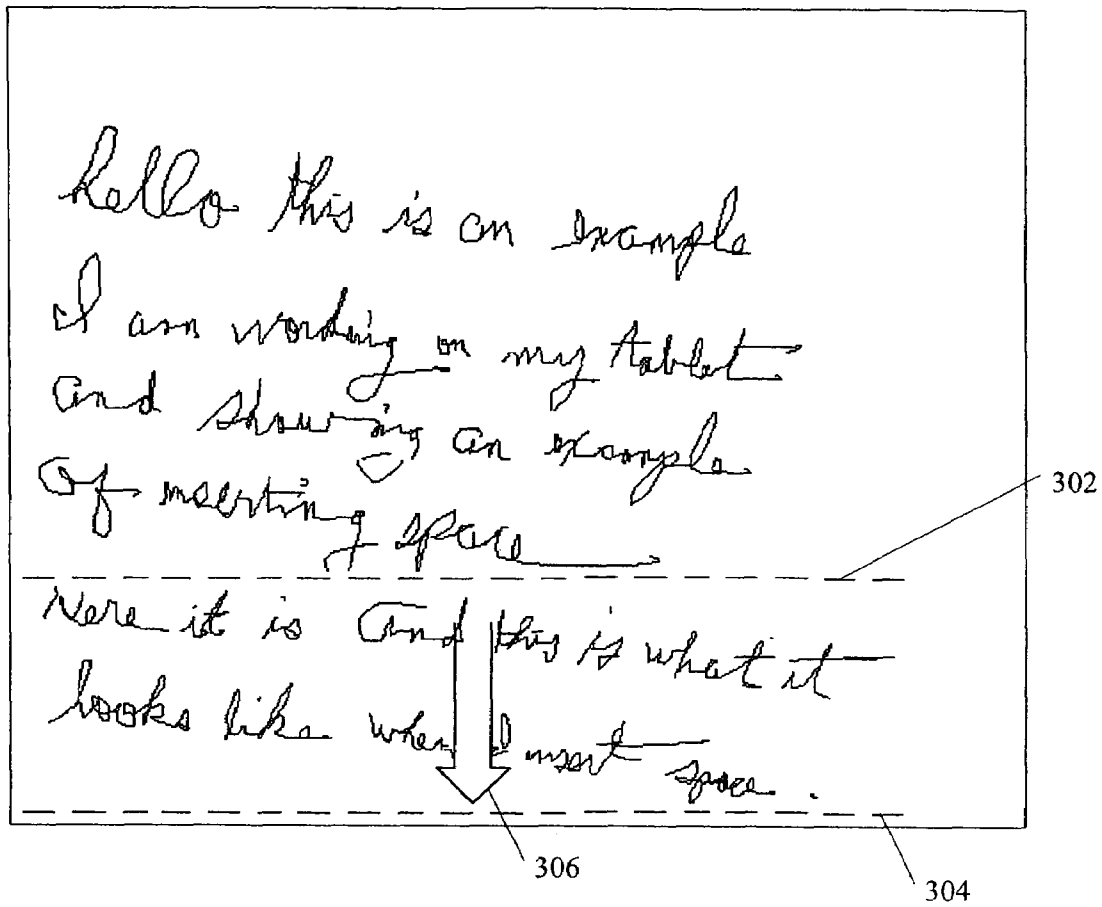 hello this is an example
I am working on my tablet
and showing an example
Of inserting space
302
Here it is And this is what it
looks like when I insert space.
306
304